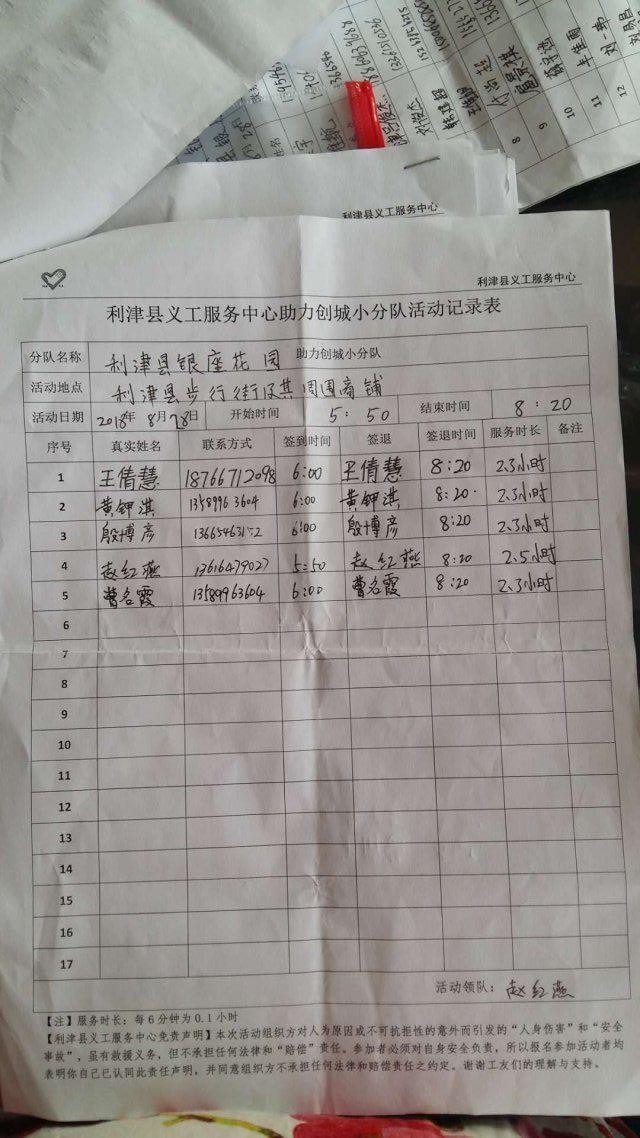 利津县义工服务中心
利津县义工服务中心
利津县义工服务中心助力创城小分队活动记录表
分队名称 利津县银座花园 助力创城小分队
活动地点 利津县步行街及其周围商铺
活动日期 2018年8月28日 开始时间 5:50 结束时间 8:20
序号 真实姓名 联系方式 签到时间 签退 签退时间 服务时长 备注
1 王倩慧 18766712098 6:00 王倩慧 8:20 2.3小时
2 黄钾淇 13589963604 6:00 黄钾淇 8:20 2.3小时
3 殷博彦 13665463152 6:00 殷博彦 8:20 2.3小时
4 赵红燕 13616479027 5:50 赵红燕 8:20 2.5小时
5 曹名霞 13589963604 6:00 曹名霞 8:20 2.3小时
6
7
8
9
10
11
12
13
14
15
16
17
活动领队：赵红燕
【注】服务时长：每6分钟为0.1小时
【利津县义工服务中心免责声明】本次活动组织方对人为原因或不可抗拒性的意外而引发的“人身伤害”和“安全
事故”，虽有救援义务，但不承担任何法律和“赔偿”责任。参加者必须对自身安全负责，所以报名参加活动者均
表明你自己已认同此责任声明，并同意组织方不承担任何法律和赔偿责任之约定。谢谢工友们的理解与支持。